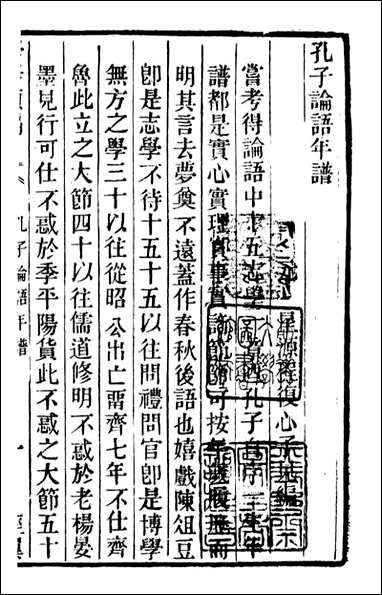 孔子論語年譜
星源復心子
嘗考得論語中十五志學章孔子自序一生年
譜都是實心實理實事實詣節可按年而
明其言去夢奠不遠蓋作春秋後語也嬉戲陳俎豆
卽是志學不待十五十五以往問禮問官卽是博學
無方之學三十以往從昭公出亡畱齊七年不仕齊
魯此立之大節四十以往儒道修明不惑於老楊晏
墨見行可仕不惑於季平陽貨此不惑之大節五十
孔子論語年譜 一